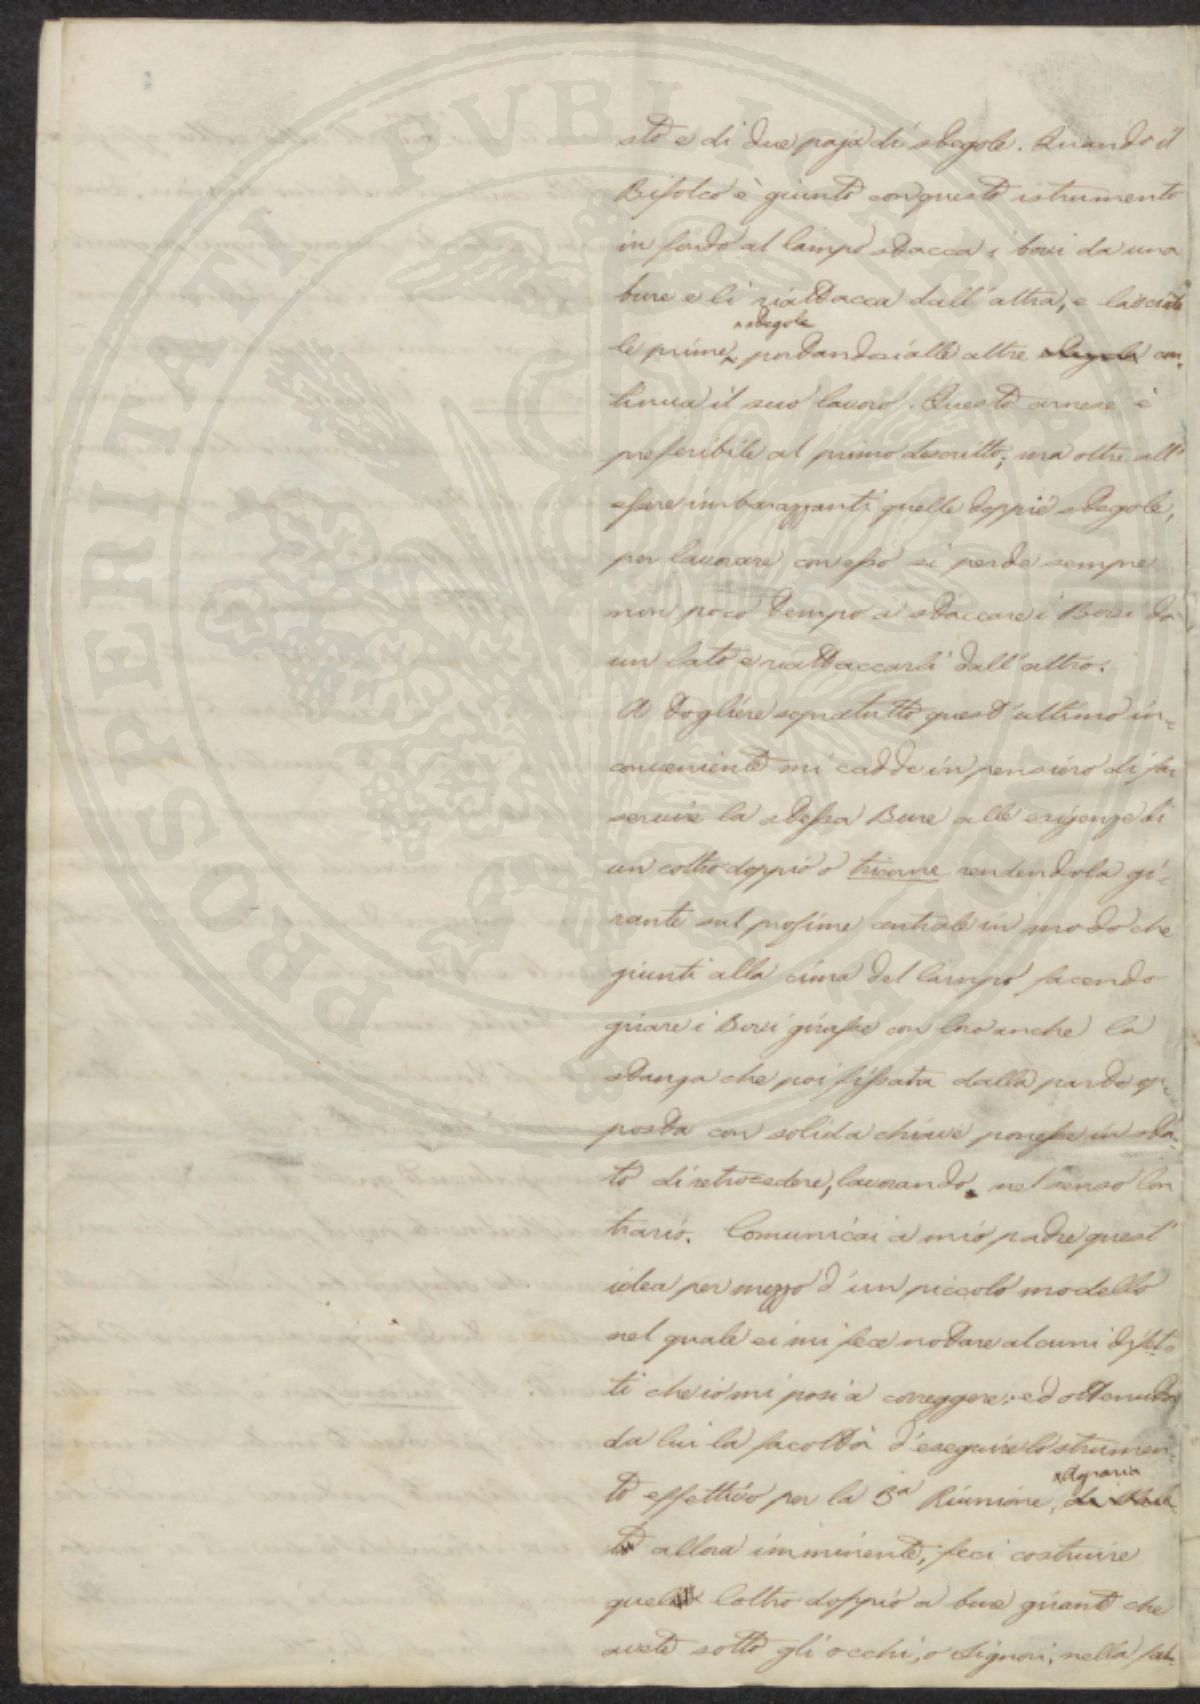 PROSPERITATI PUBLI
sto e di due paja di stegole. Quando il
Bifolco è giunto con questo istrumento
in fondo al Campo stacca i bovi da una
bure e li riattacca dall'altra, e lasciate
stegole
le prime, portandosi alle altre stegole con-
tinua il suo lavoro. Questo arnese è
preferibile al primo descritto; ma oltre all'
essere imbarazzanti quelle doppie stegole,
per lavorare con esso si perde sempre
non poco tempo a staccare i Bovi da
un lato e riattaccarli dall'altro.
A togliere sopratutto quest'ultimo in-
conveniente mi cadde in pensiero di far
servire la stessa Bure alle esigenze di
un coltro doppio o rendendola gi-
rante sul profime centrale in modo che
giunti alla cima del Campo facendo
girare i Bovi girasse con loro anche la
stanga che poi fissata dalla parte op-
posta con solida chiave ponesse in sta-
to di retrocedere, lavorando nel senso Con
trario. Comunicai a mio padre quest'
idea per mezzo d'un piccolo modello
nel quale ei mi fece notare alcuni difet-
ti che io mi posi a correggere; ed ottenuta
da lui la facoltà d'eseguire lo strumen-
Agraria
to effettivo per la 3a Riunione, di
to allora imminente, feci costruire
quel Coltro doppio a bure girante che
avete sotto gli occhi, o Signori; nella fab-